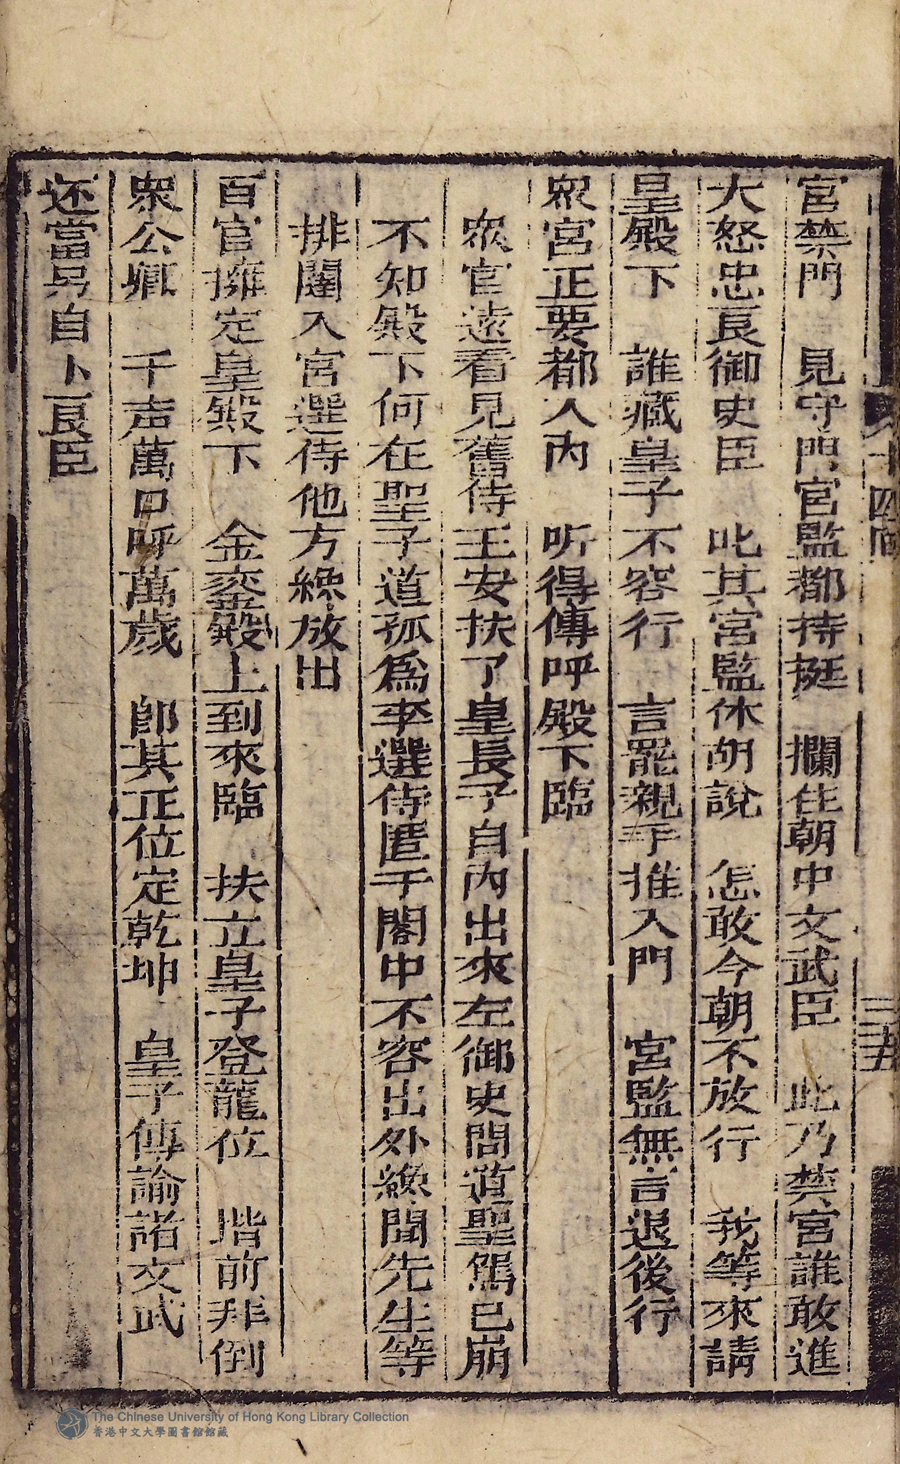 宮禁門　見守門官監都持挺　攔住朝中文武臣　此乃禁宮誰敢進
大怒忠良御史臣　叱其宮監休胡說　怎敢今朝不放行　我等來請
皇殿下　誰藏皇子不容行　言罷親手推入門　宮監無言退後行
眾宮正要都入內　听得傳呼殿下臨
眾官遠看見舊侍王安扶了皇長子自內出來左御史問道聖駕已崩
不知殿下何在聖子道孤爲李選侍匿于閣中不容出外纔聞先生等
排闥入宮選侍他方纔放出
百官擁定皇殿下　金鑾殿上到來臨　扶立皇子登龍位　堦前拜倒
眾公卿　千声萬口呼萬歲　卽其正位定乾坤　皇子傳諭諸文武
还當另自卜良臣
十四回
三五
The Chinese University of Hong Kong Library Collection
香港中文大學圖書館館藏